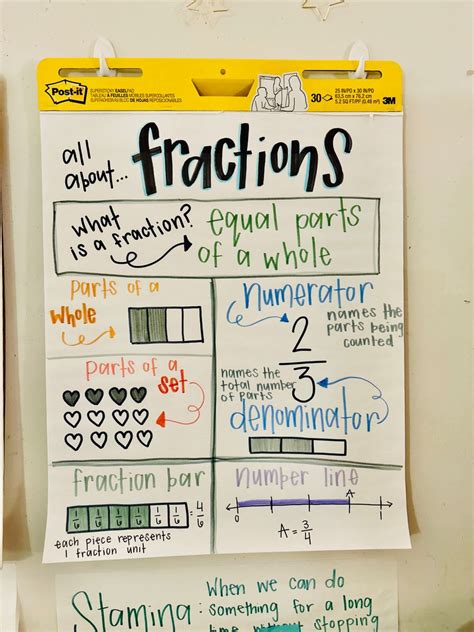 Post-it
SUPERSTICKY EASEL PAD
TABLEAU À FEUILLES MOBILES SUPERCOLLANTES
SUPERADHESIVO BLOC DE HOJAS REPOSICIONABLES
30
25 IN/PO x 30 IN/PO
63,5 cm x 76,2 cm
5.2 SQ FT/PP (0,48 m²)
3M
all
about...
fractions
What
is a fraction?
equal parts
of a whole
parts of a
whole
numerator
names the
parts being
counted
2
3
names the
total number
of parts
denominator
parts of a
set
fraction bar
1/6 1/6 1/6 1/6 1/6 1/6 = 4/6
each piece represents
1 fraction unit
number line
A
0 1
A = 3/4
Stamina:
When we can do
something for a long
time without stopping